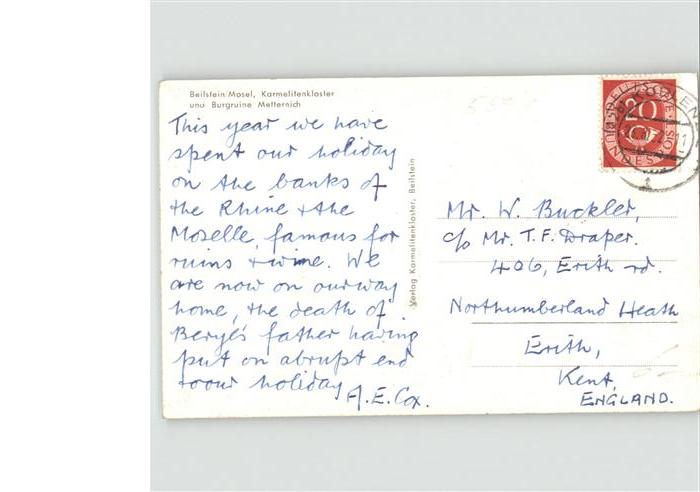 Beilstein/Mosel, Karmelitenkloster
und Burgruine Metternich
This year we have
spent our holiday
on the banks of
the Rhine + the
Moselle, famous for
ruins + wine. We
are now on our way
home, the death of
Beryl's father having
put an abrupt end
to our holiday
A.E. Cox.
Verlag Karmelitenkloster, Beilstein
DEUTSCHE
20
BUNDESPOST
KOBLENZ
Mr. W. Buckler,
c/o Mr. T.F. Draper.
406, Erith rd.
Northumberland Heath
Erith,
Kent,
ENGLAND.